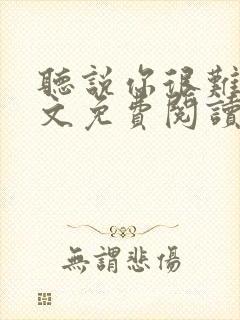 聽說你很難
文免費閱讀
無謂悲傷